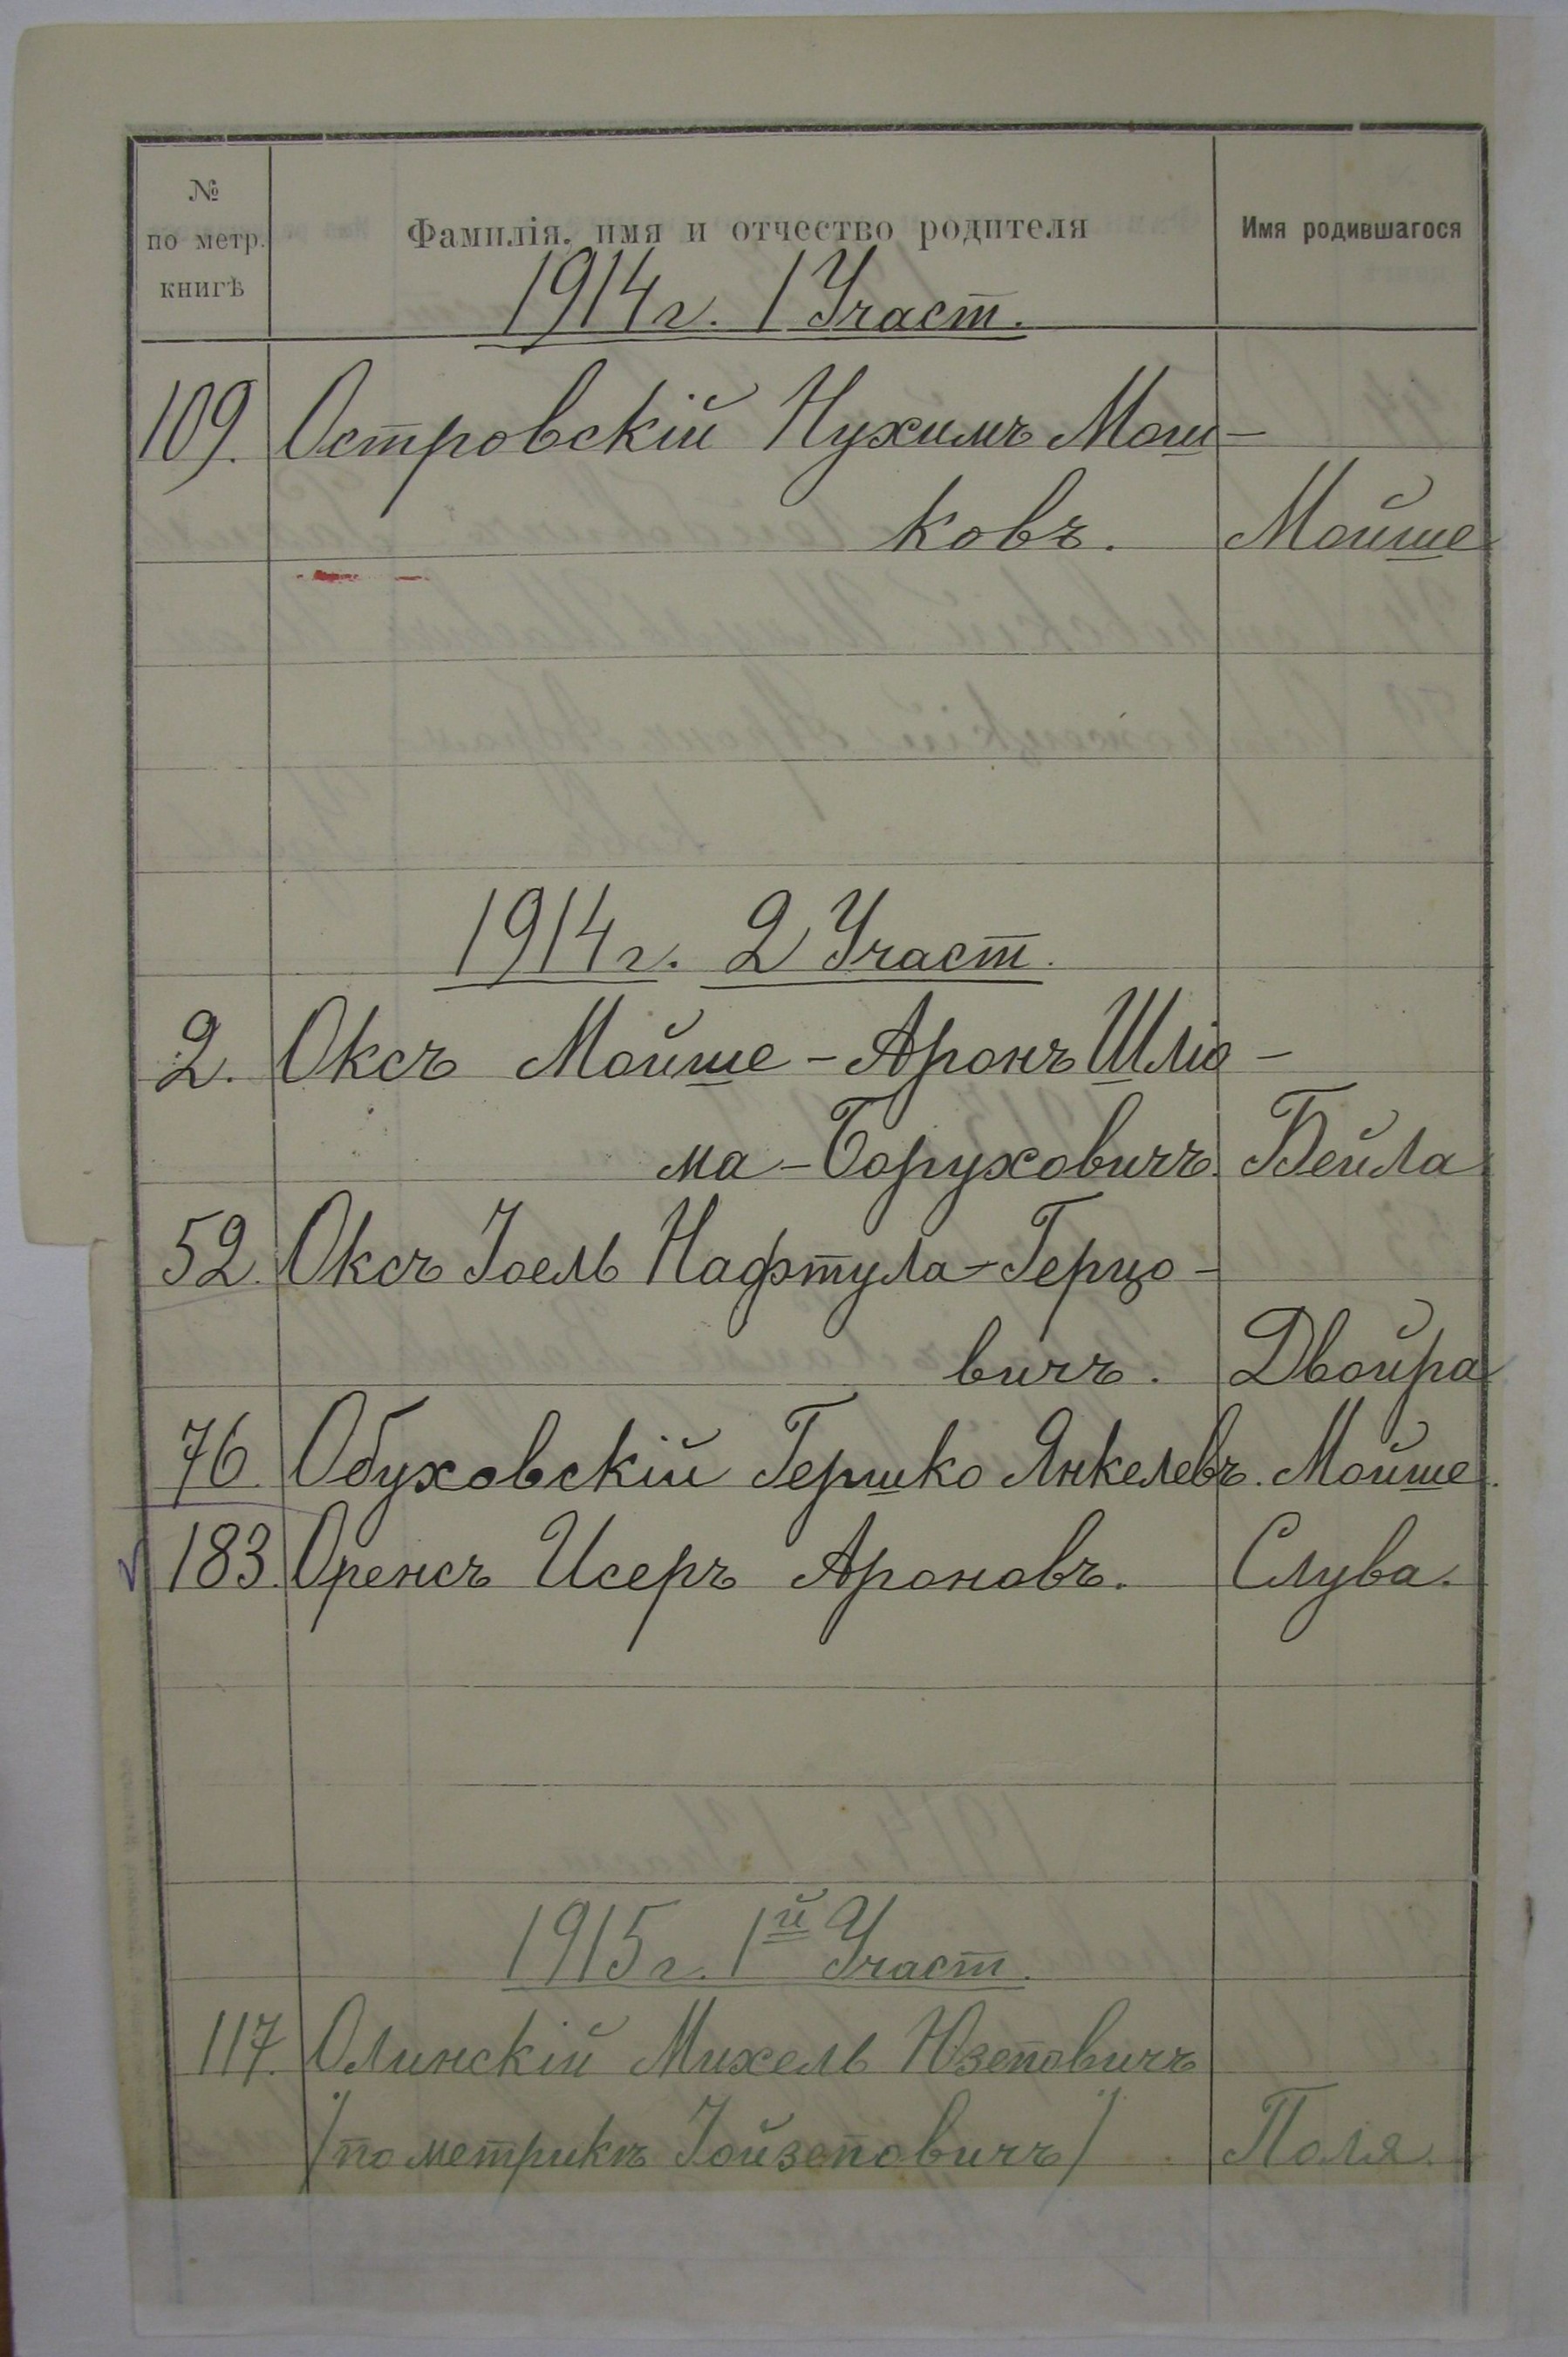 №
по метр.
книгѣ
Фамилія, имя и отчество родителя
Имя родившагося
1914 г. 1 Участ.
109. Островскій Нухимъ Мош-
ковъ. Мойше
1914 г. 2 Участ.
2. Оксъ Мойше-Аронъ Шліо-
ма-Боруховичъ. Бейла
52. Оксъ Іоель Нафтула-Герцо-
вичъ. Двойра
76. Обуховскій Гершко Янкелевъ. Мойше.
183. Оренсъ Исеръ Ароновъ. Слува.
1915 г. 1й Участ.
117. Олинскій Михель Юзеповичъ
/по метрикѣ Іойзеповичъ/ Поля.